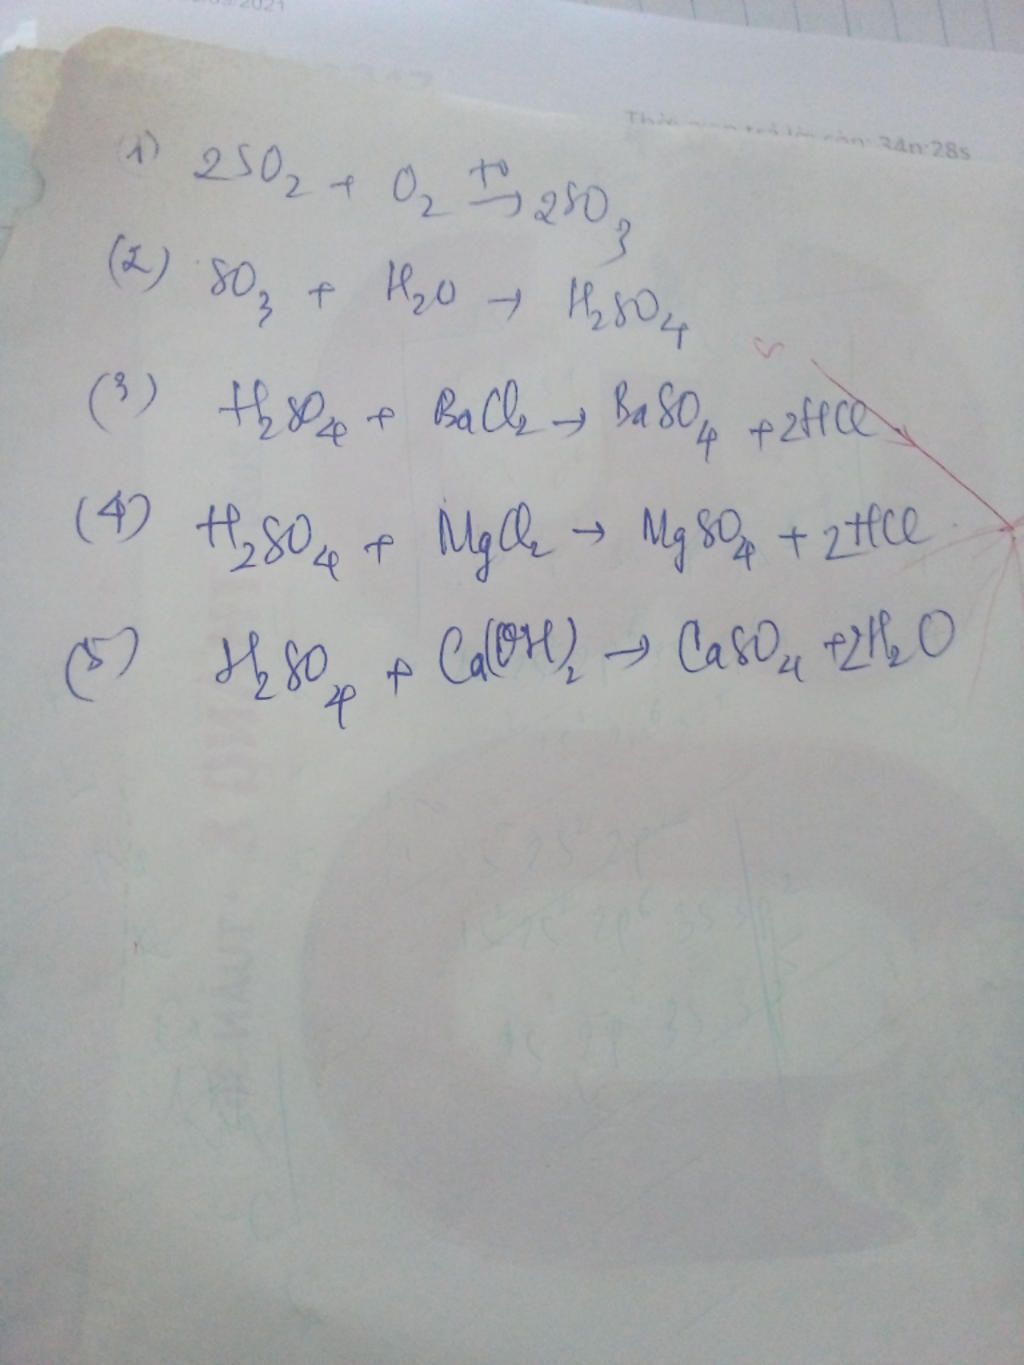 /2021
34n:28s
(1) 2SO₂ + O₂ →(t⁰) 2SO₃
(2) SO₃ + H₂O → H₂SO₄
(3) H₂SO₄ + BaCl₂ → BaSO₄ + 2HCl
(4) H₂SO₄ + MgCl₂ → MgSO₄ + 2HCl
(5) H₂SO₄ + Ca(OH)₂ → CaSO₄ + 2H₂O